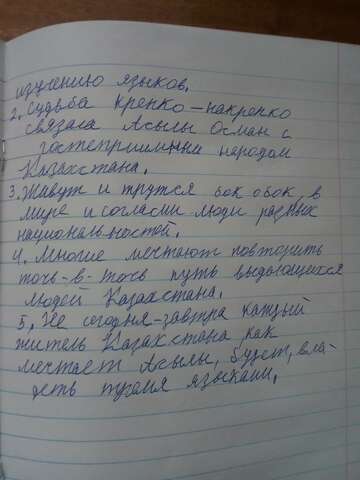 изучению языков.
2. Судьба крепко-накрепко
связала Асылы Осман с
гостеприимным народом
Казахстана.
3. Живут и трутся бок обок в
мире и согласии люди разных
национальностей.
4. Многие мечтают повторить
точь-в-точь путь выдающихся
людей Казахстана.
5. Не сегодня-завтра каждый
житель Казахстана как
мечтает Асылы, будет, вла-
деть тремя языками.